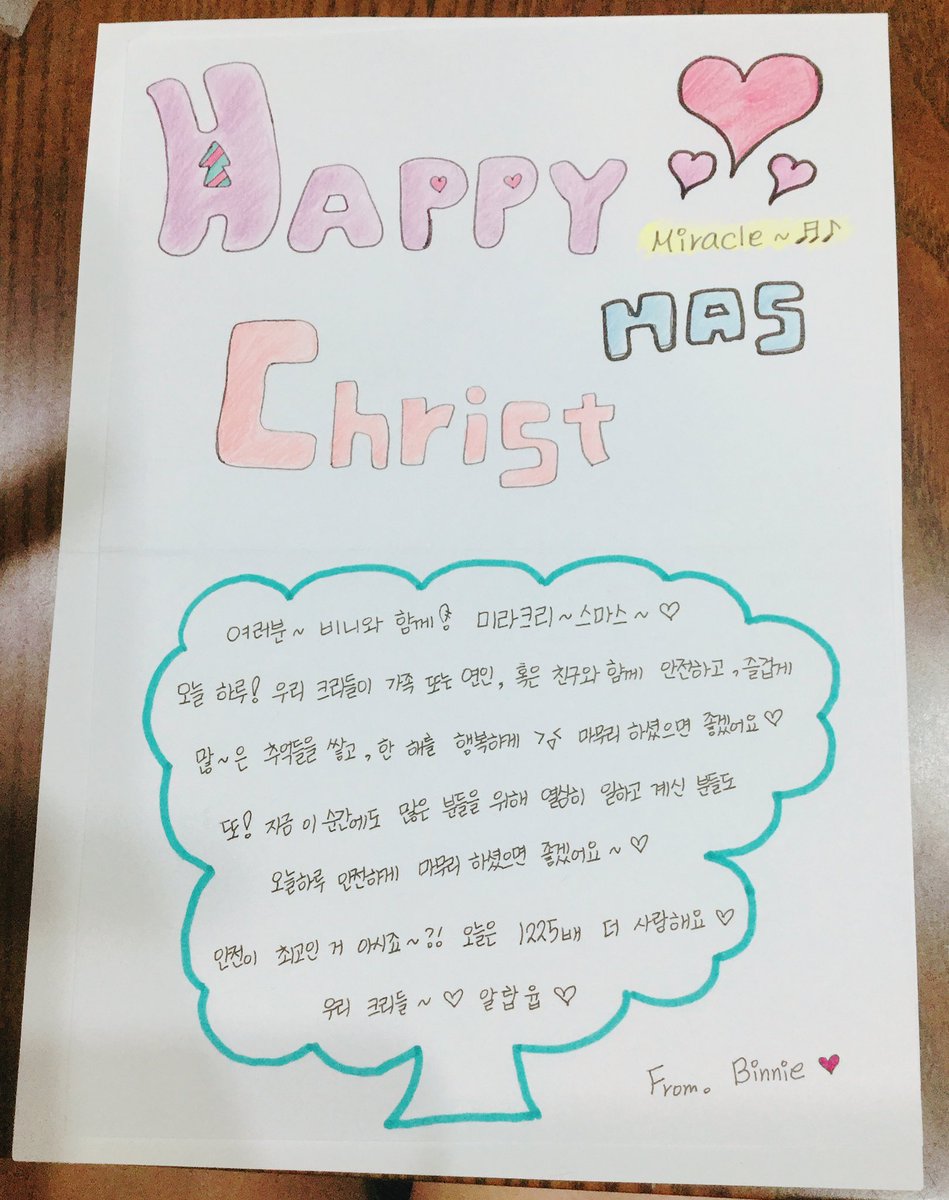 HAPPY
Miracle~♬♪
MAS
Christ
여러분~ 비니와 함께 미라크리~스마스~♡
오늘 하루! 우리 크리들이 가족 또는 연인, 혹은 친구와 함께 안전하고, 즐겁게
많~은 추억들을 쌓고, 한 해를 행복하게 마무리 하셨으면 좋겠어요♡
또! 지금 이 순간에도 많은 분들을 위해 열심히 일하고 계신 분들도
오늘하루 안전하게 마무리 하셨으면 좋겠어요~♡
안전이 최고인 거 아시죠~?! 오늘은 1225배 더 사랑해요♡
우리 크리들~♡ 알랍윱♡
From. Binnie♥